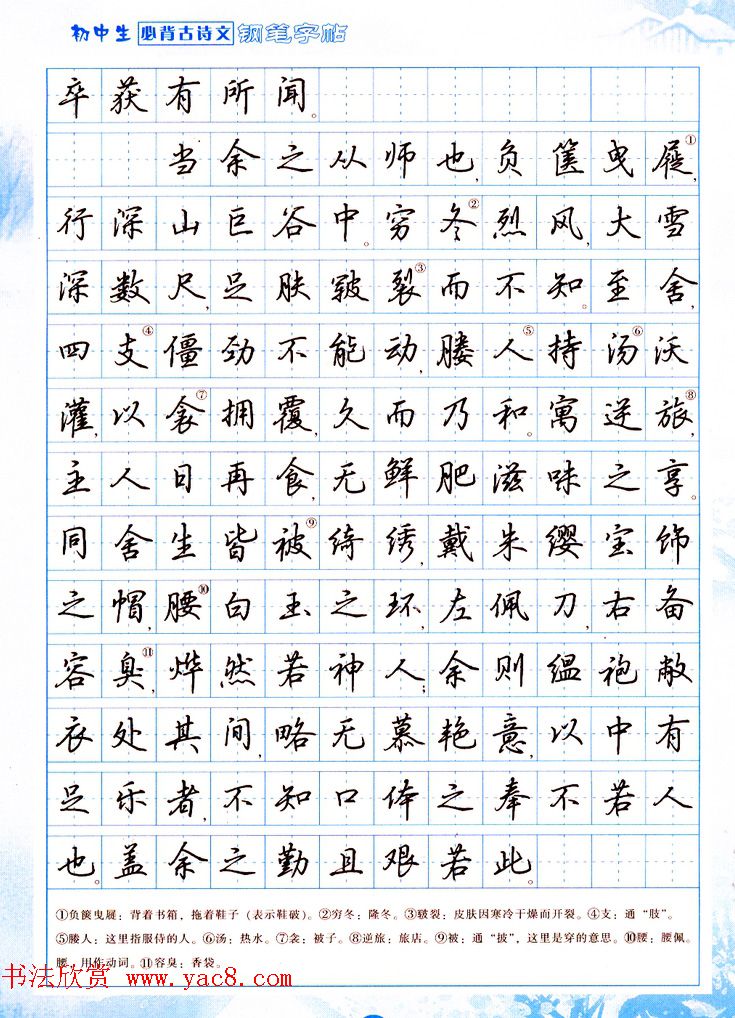 初中生必背古诗文钢笔字帖
卒获有所闻。
当余之从师也,负箧曳屣①,
行深山巨谷中。穷冬②烈风,大雪
深数尺,足肤皲裂③而不知。至舍,
四支④僵劲不能动,媵人⑤持汤⑥沃
灌,以衾⑦拥覆,久而乃和。寓逆旅⑧,
主人日再食,无鲜肥滋味之享。
同舍生皆被⑨绮绣,戴朱缨宝饰
之帽,腰⑩白玉之环,左佩刀,右备
容臭⑪,烨然若神人;余则缊袍敝
衣处其间,略无慕艳意,以中有
足乐者,不知口体之奉不若人
也。盖余之勤且艰若此。
①负箧曳屣:背着书箱,拖着鞋子(表示鞋破)。②穷冬:隆冬。③皲裂:皮肤因寒冷干燥而开裂。④支:通“肢”。
⑤媵人:这里指服侍的人。⑥汤:热水。⑦衾:被子。⑧逆旅:旅店。⑨被:通“披”,这里是穿的意思。⑩腰:腰佩。
腰,用作动词。⑪容臭:香袋。
书法欣赏 www.yac8.com